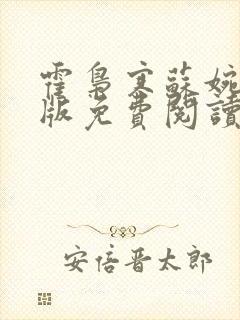 霍梟寒蘇婉
版免費閱讀
安倍晉太郎